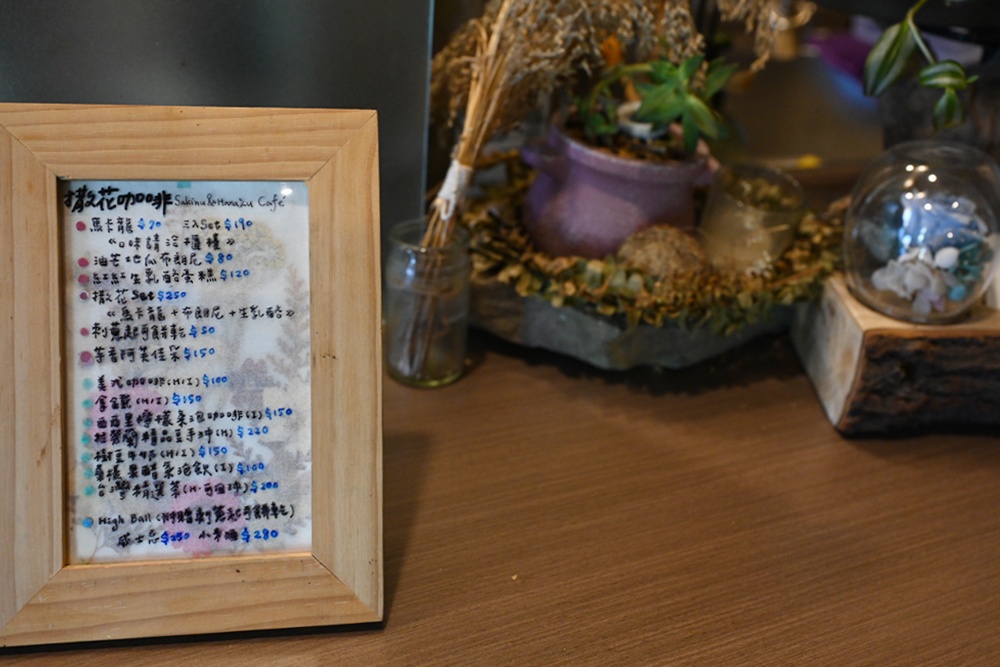 撒花咖啡 Sakinu & Hanazu Café
馬卡龍 $70 三入Set $190
《口味請洽櫃檯》
油芒地瓜布朗尼 $80
紅紅生乳酪蛋糕 $120
撒花Set $250
《馬卡龍+布朗尼+生乳酪》
刺蔥起司餅乾 $50
芋香阿芙佳朵 $150
美式咖啡(H/I) $100
拿鐵(H/I) $150
西西里檸檬氣泡咖啡(I) $150
精品豆手沖(H) $220
樹豆牛奶(H/I) $150
果醋氣泡飲(I) $100
台灣精選茶(H.可回沖) $200
High Ball (附贈刺蔥起司餅乾)
威士忌 $250 小米酒 $280